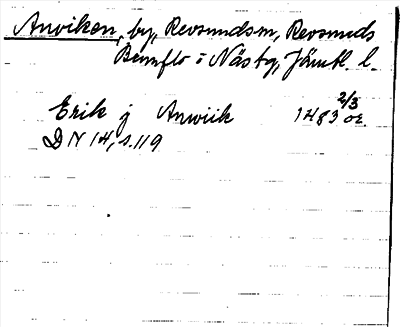 Anviken, by, Revsundsm, Revsunds
Bemflo i Nästg, Jämtl. l.
Erik j Anwiik 1483 2/3 or.
D N 14, s. 119